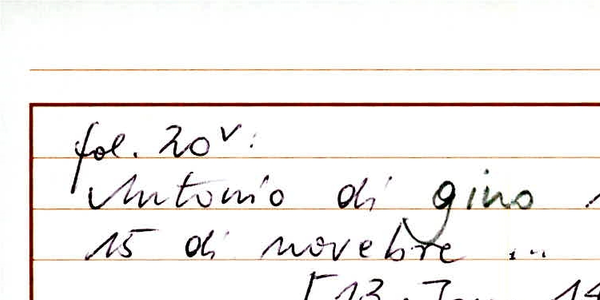 fol. 20v:
Antonio di gino
15 di novebre ...
[13. Jan. 14